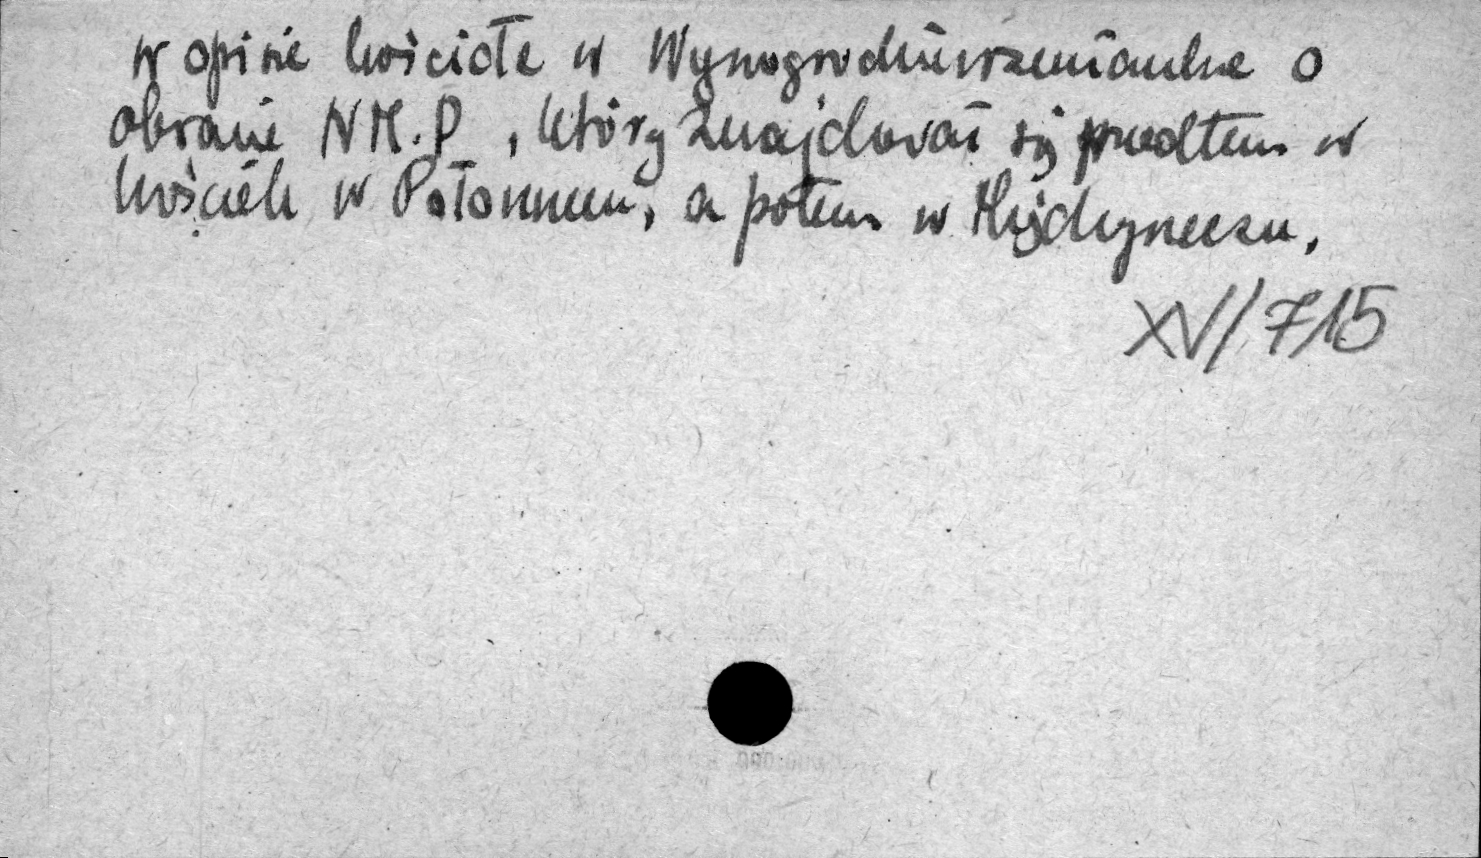 w opisie kościoła w Wynogrodku wzmianka o
obrazie N.M.P, który znajdował się przedtem w
kościele w Połonnem, a potem w Międzyrzeczu,
XV/715